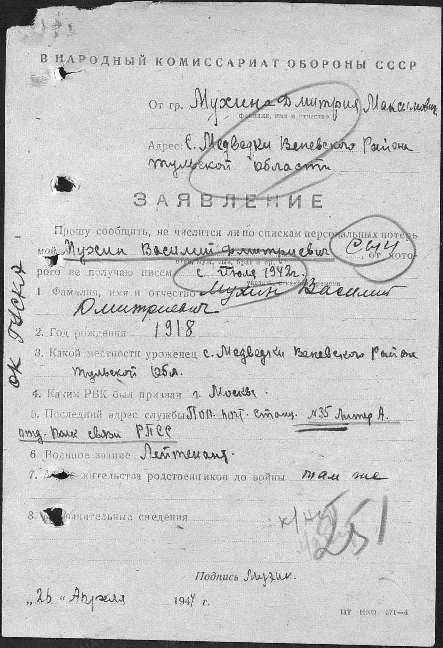 В НАРОДНЫЙ КОМИССАРИАТ ОБОРОНЫ СССР
От гр. Мухина Дмитрия Максимович
фамилия, имя и отчество
Адрес: С. Медведки Веневского Района
Тульской Области
ЗАЯВЛЕНИЕ
Прошу сообщить, не числится ли по спискам персональных потерь
мой Мухин Василий Дмитриевич сын, от кото-
рого не получаю писем с Июля 1942г.
1 Фамилия, имя и отчество Мухин Василий
Дмитриевич
2. Год рождения 1918
3. Какой местности уроженец с. Медведки Веневского Района
Тульской Обл.
4. Каким РВК был призван г. Москва
5. Последний адрес службы Пол. почт. станц. №35 Литер А.
отд. Полк связи РПСС
6. Военное звание Лейтенант.
7. жительства родственников до войны там же
8. сведения
251
Подпись Мухин.
"26" Апреля 1944 г.
ок Гуска